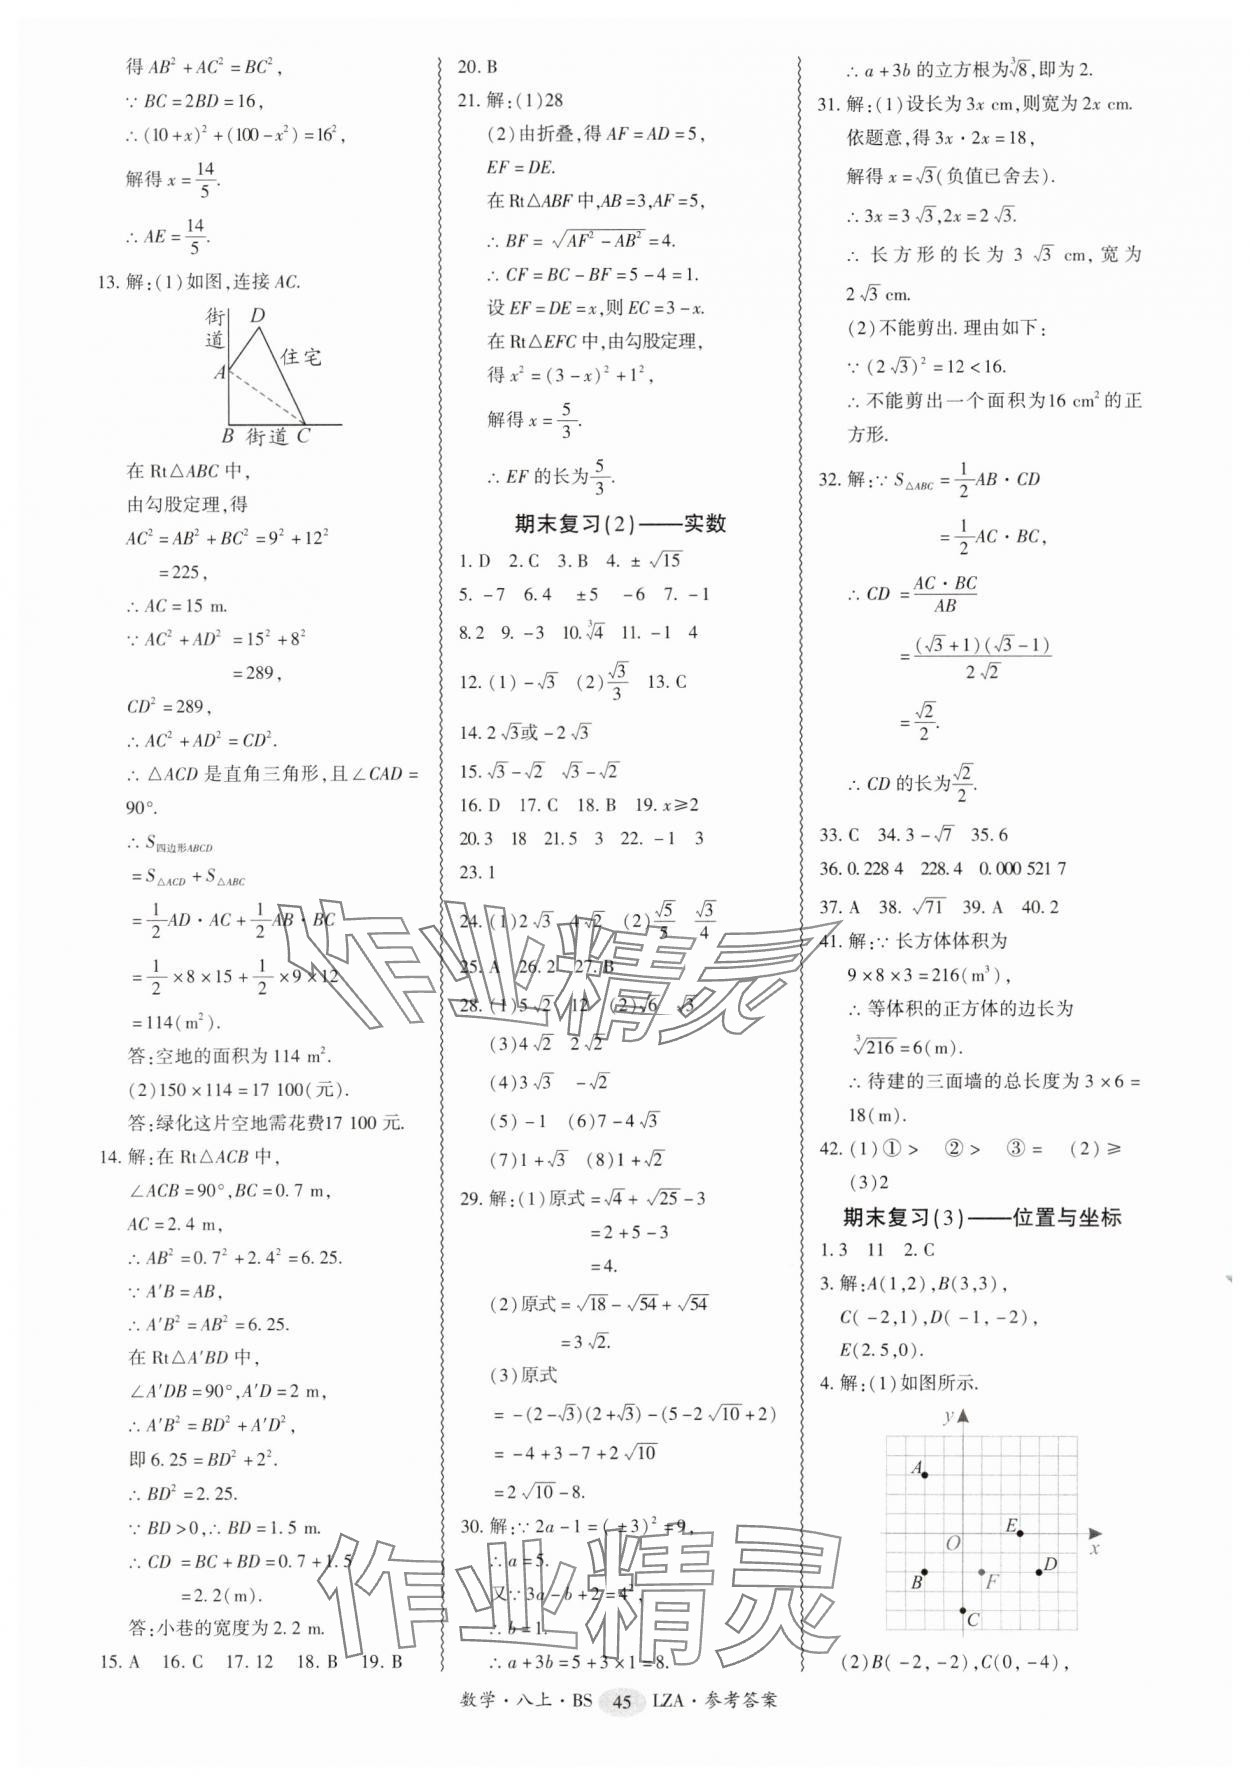 得 AB²+AC²=BC²,
∵ BC=2BD=16,
∴ (10+x)²+(100-x²)=16²,
解得 x=14/5.
∴ AE=14/5.
13. 解:(1)如图,连接 AC.
街道 D
住宅
A
B 街道 C
在 Rt△ABC 中,
由勾股定理,得
AC²=AB²+BC²=9²+12²
=225,
∴ AC=15 m.
∵ AC²+AD²=15²+8²
=289,
CD²=289,
∴ AC²+AD²=CD².
∴ △ACD 是直角三角形,且∠CAD=
90°.
∴ S四边形ABCD
=S△ACD+S△ABC
=1/2 AD·AC+1/2 AB·BC
=1/2×8×15+1/2×9×12
=114(m²).
答:空地的面积为 114 m².
(2)150×114=17 100(元).
答:绿化这片空地需花费17 100 元.
14. 解:在 Rt△ACB 中,
∠ACB=90°,BC=0.7 m,
AC=2.4 m,
∴ AB²=0.7²+2.4²=6.25.
∵ A′B=AB,
∴ A′B²=AB²=6.25.
在 Rt△A′BD 中,
∠A′DB=90°,A′D=2 m,
∴ A′B²=BD²+A′D²,
即 6.25=BD²+2².
∴ BD²=2.25.
∵ BD>0,∴ BD=1.5 m.
∴ CD=BC+BD=0.7+1.5
=2.2(m).
答:小巷的宽度为 2.2 m.
15. A 16. C 17. 12 18. B 19. B
20. B
21. 解:(1)28
(2)由折叠,得 AF=AD=5,
EF=DE.
在 Rt△ABF 中,AB=3,AF=5,
∴ BF=√(AF²-AB²)=4.
∴ CF=BC-BF=5-4=1.
设 EF=DE=x,则 EC=3-x.
在 Rt△EFC 中,由勾股定理,
得 x²=(3-x)²+1²,
解得 x=5/3.
∴ EF 的长为5/3.
期末复习(2)——实数
1. D 2. C 3. B 4. ±√15
5. -7 6. 4 ±5 -6 7. -1
8. 2 9. -3 10. ³√4 11. -1 4
12. (1)-√3 (2)√3/3 13. C
14. 2√3或-2√3
15. √3-√2 √3-√2
16. D 17. C 18. B 19. x≥2
20. 3 18 21. 5 3 22. -1 3
23. 1
24. (1)2√3 4√2 (2)√5/5 √3/4
25. A 26. 2 27. B
28. (1)5√2 12 (2)√6 √3
(3)4√2 2√2
(4)3√3 -√2
(5)-1 (6)7-4√3
(7)1+√3 (8)1+√2
29. 解:(1)原式=√4+√25-3
=2+5-3
=4.
(2)原式=√18-√54+√54
=3√2.
(3)原式
=-(2-√3)(2+√3)-(5-2√10+2)
=-4+3-7+2√10
=2√10-8.
30. 解:∵ 2a-1=(±3)²=9,
∴ a=5.
又∵ 3a-b+2=4²,
∴ b=1.
∴ a+3b=5+3×1=8.
∴ a+3b 的立方根为³√8,即为 2.
31. 解:(1)设长为 3x cm,则宽为 2x cm.
依题意,得 3x·2x=18,
解得 x=√3(负值已舍去).
∴ 3x=3√3,2x=2√3.
∴ 长方形的长为 3√3 cm,宽为
2√3 cm.
(2)不能剪出.理由如下:
∵ (2√3)²=12<16.
∴ 不能剪出一个面积为16 cm²的正
方形.
32. 解:∵ S△ABC=1/2 AB·CD
=1/2 AC·BC,
∴ CD=AC·BC/AB
=(√3+1)(√3-1)/2√2
=√2/2.
∴ CD 的长为√2/2.
33. C 34. 3-√7 35. 6
36. 0.228 4 228.4 0.000 521 7
37. A 38. √71 39. A 40. 2
41. 解:∵ 长方体体积为
9×8×3=216(m³),
∴ 等体积的正方体的边长为
³√216=6(m).
∴ 待建的三面墙的总长度为 3×6=
18(m).
42. (1)①> ②> ③= (2)≥
(3)2
期末复习(3)——位置与坐标
1. 3 11 2. C
3. 解:A(1,2),B(3,3),
C(-2,1),D(-1,-2),
E(2.5,0).
4. 解:(1)如图所示.
y
A
O E x
B F D
C
(2)B(-2,-2),C(0,-4),
数学·八上·BS 45 LZA·参考答案
作业精灵
作业精灵